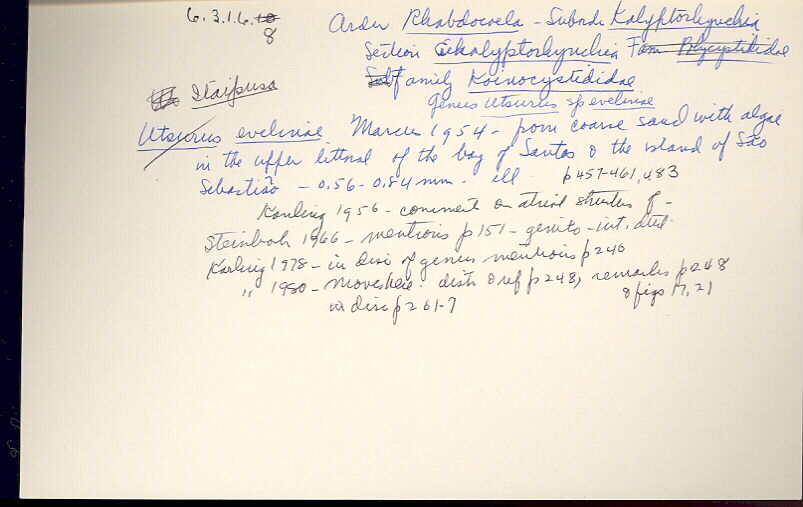 6.3.1.6.10
8
Order Rhabdocoela - Subordr Kalyptorhynchia
Section Eukalyptorhynchia Fam Polycystididae
Subfamily Koinocystididae
Itaipusa
Genus Utsurus sp evelinae
Utsurus evelinae Marcus 1954 - from coarse sand with algae
in the upper littoral of the bay of Santos & the island of São
Sebastião - 0.56-0.84 mm - ill p457-461, 483
Karling 1956 - comment on atrial structures of -
Steinböck 1966 - mentions p151 - genito-int. duct.
Karling 1978 - in disc of genus mentions p240
" 1980 - moves here: distr & ref p248, remarks p248
in disc p261-7 & figs 17, 21